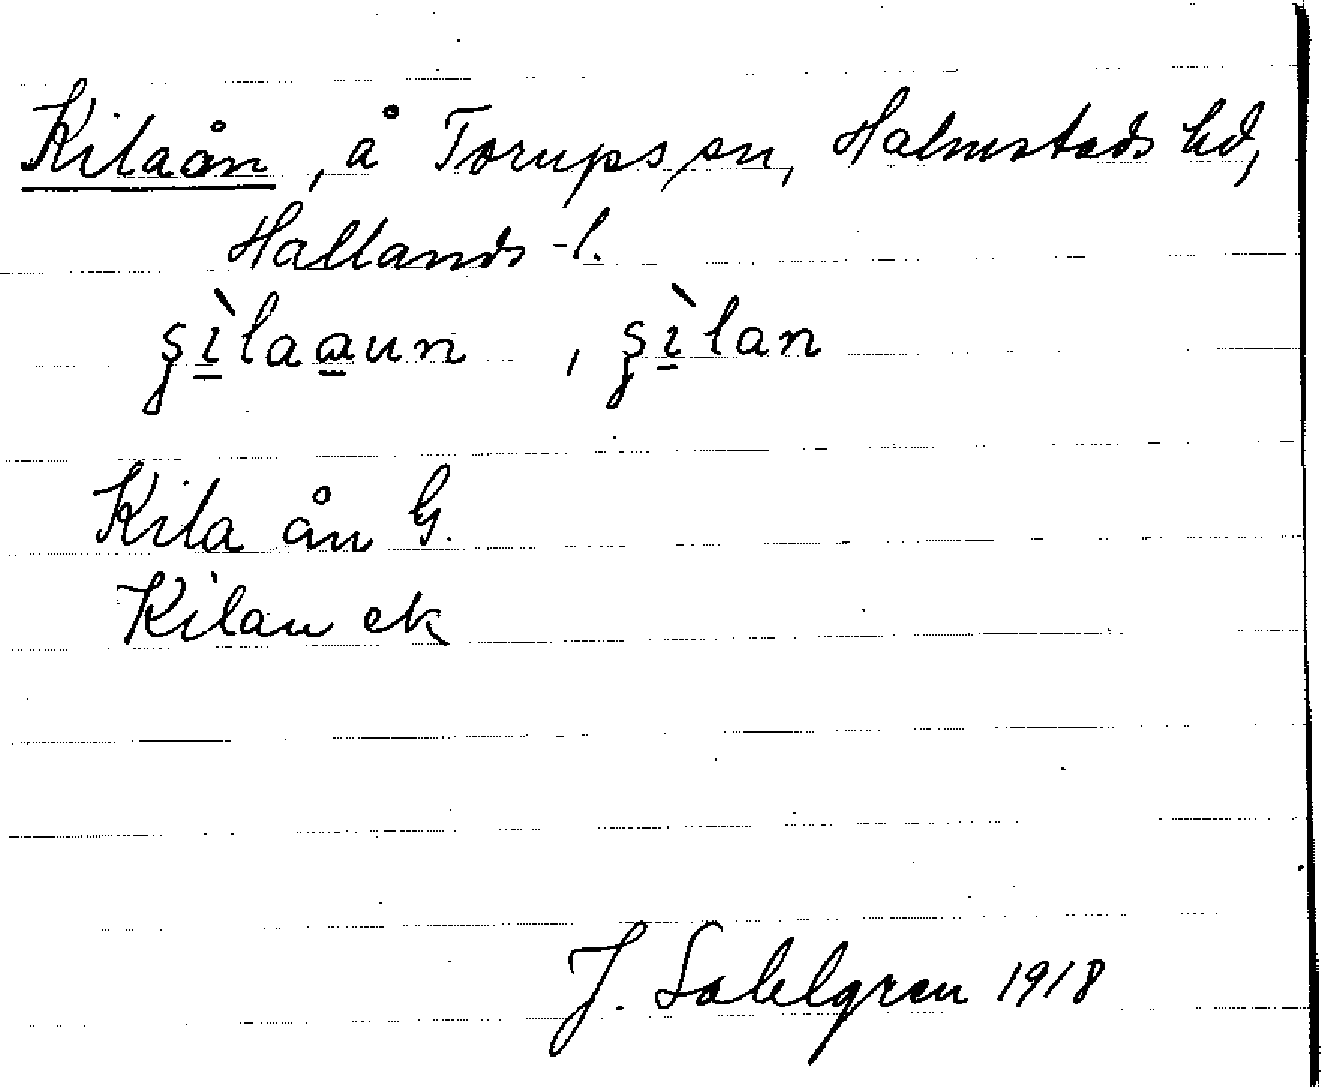 Kilaån, å Torups sn, Halmstads hd,
Hallands l.
şìlaaun, şìlan
Kila ån G.
Kilan ek
J. Sahlgren 1918